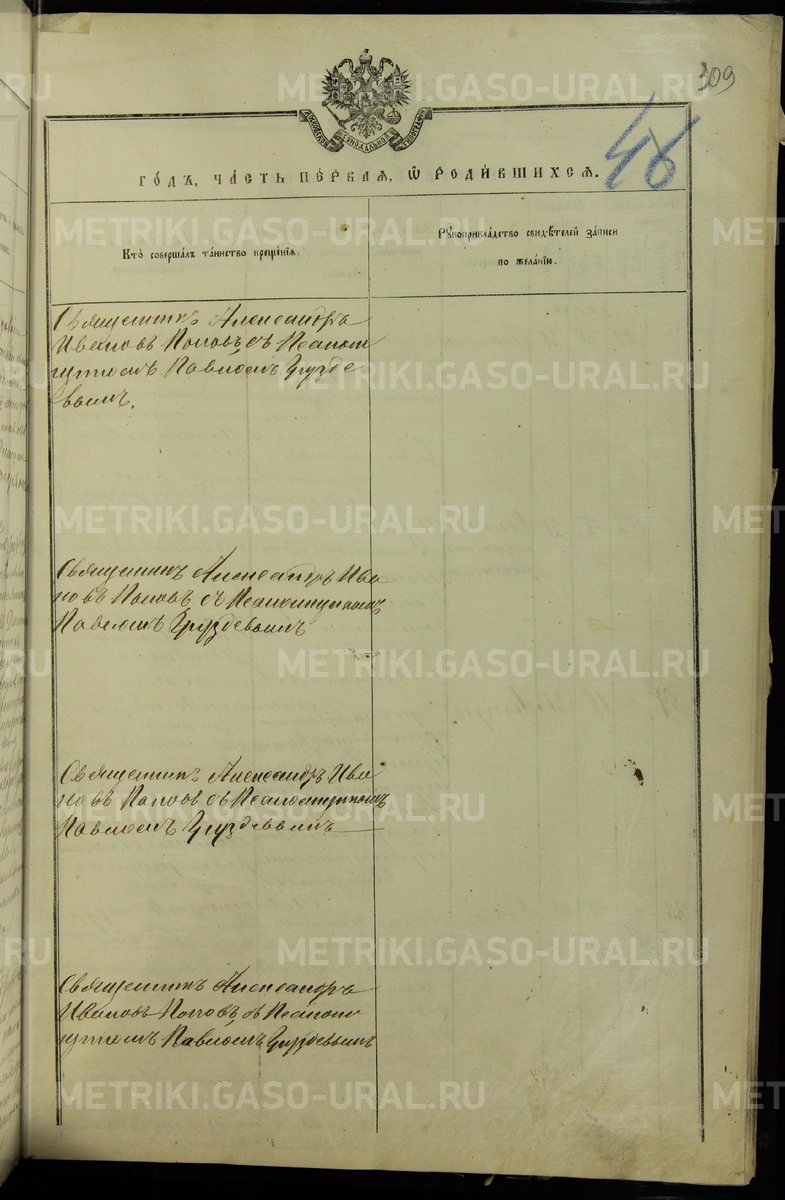 309
46
МОСКОВСКОЙ СѴНОДАЛЬНОЙ ТИПОГРАФІИ
ГОДЪ, ЧАСТЬ ПЕРВАЯ, Ѡ РОДИВШИХСЯ.
Кто совершалъ таинство крещенія.
Рукоприкладство свидѣтелей записи
по желанію.
Священникъ Александръ
Ивановъ Поповъ съ Псалом
щикомъ Павломъ Грузде
вымъ.
Священникъ Александръ Ива
новъ Поповъ съ Псаломщикомъ
Павломъ Груздевымъ
Священникъ Александръ Ива
новъ Поповъ съ Псаломщикомъ
Павломъ Груздевымъ
Священникъ Александръ
Ивановъ Поповъ съ Псалом
щикомъ Павломъ Груздевымъ
METRIKI.GASO-URAL.RU